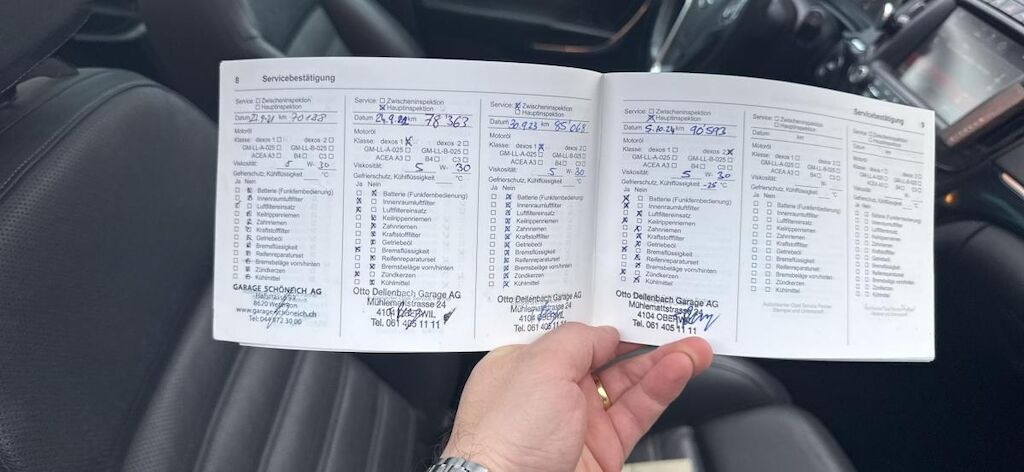 8 Servicebestätigung
Service: Zwischeninspektion
Hauptinspektion
Datum km 70
Motoröl
Klasse: dexos 1 dexos 2
GM-LL-A-025 GM-LL-B-025
ACEA A3 B4 C3
Viskosität: 5 W- 30
Gefrierschutz, Kühlflüssigkeit °C
Ja Nein
Batterie (Funkfernbedienung)
Innenraumluftfilter
Luftfiltereinsatz
Keilrippenriemen
Zahnriemen
Kraftstofffilter
Getriebeöl
Bremsflüssigkeit
Reifenreparaturset
Bremsbeläge vorn/hinten
Zündkerzen
Kühlmittel
GARAGE SCHÖNEICH AG
8620 Wetzikon
www.garageschoneich.ch
Service: Zwischeninspektion
Hauptinspektion
Datum km 78'363
Motoröl
Klasse: dexos 1 dexos 2
GM-LL-A-025 GM-LL-B-025
ACEA A3 B4 C3
Viskosität: 5 W- 30
Gefrierschutz, Kühlflüssigkeit °C
Ja Nein
Batterie (Funkfernbedienung)
Innenraumluftfilter
Luftfiltereinsatz
Keilrippenriemen
Zahnriemen
Kraftstofffilter
Getriebeöl
Bremsflüssigkeit
Reifenreparaturset
Bremsbeläge vorn/hinten
Zündkerzen
Kühlmittel
Otto Dellenbach Garage AG
Mühlemattstrasse 24
4104 OBERWIL
Tel. 061 405 11 11
Service: Zwischeninspektion
Hauptinspektion
Datum 30.9.23 km 85'068
Motoröl
Klasse: dexos 1 dexos 2
GM-LL-A-025 GM-LL-B-025
ACEA A3 B4 C3
Viskosität: 5 W- 30
Gefrierschutz, Kühlflüssigkeit °C
Ja Nein
Batterie (Funkfernbedienung)
Innenraumluftfilter
Luftfiltereinsatz
Keilrippenriemen
Zahnriemen
Kraftstofffilter
Getriebeöl
Bremsflüssigkeit
Reifenreparaturset
Bremsbeläge vorn/hinten
Zündkerzen
Kühlmittel
Otto Dellenbach Garage AG
Mühlemattstrasse 24
4104 OBERWIL
Tel. 061 405 11 11
Servicebestätigung 9
Service: Zwischeninspektion
Hauptinspektion
Datum 5.10.24 km 90'593
Motoröl
Klasse: dexos 1 dexos 2
GM-LL-A-025 GM-LL-B-025
ACEA A3 B4 C3
Viskosität: 5 W- 30
Gefrierschutz, Kühlflüssigkeit -25 °C
Ja Nein
Batterie (Funkfernbedienung)
Innenraumluftfilter
Luftfiltereinsatz
Keilrippenriemen
Zahnriemen
Kraftstofffilter
Getriebeöl
Bremsflüssigkeit
Reifenreparaturset
Bremsbeläge vorn/hinten
Zündkerzen
Kühlmittel
Otto Dellenbach Garage AG
Mühlemattstrasse 24
4104 OBERWIL
Tel. 061 405 11 11
Service: Zwischeninspektion
Hauptinspektion
Datum km
Motoröl
Klasse: dexos 1 dexos 2
GM-LL-A-025 GM-LL-B-025
ACEA A3 B4 C3
Viskosität: W-
Gefrierschutz, Kühlflüssigkeit °C
Ja Nein
Batterie (Funkfernbedienung)
Innenraumluftfilter
Luftfiltereinsatz
Keilrippenriemen
Zahnriemen
Kraftstofffilter
Getriebeöl
Bremsflüssigkeit
Reifenreparaturset
Bremsbeläge vorn/hinten
Zündkerzen
Kühlmittel
Autorisierter Opel Service Partner
Stempel und Unterschrift
Service: Zwischeninspektion
Hauptinspektion
Datum km
Motoröl
Klasse: dexos 1 dexos 2
GM-LL-A-025 GM-LL-B-025
ACEA A3 B4 C3
Viskosität: W-
Gefrierschutz, Kühlflüssigkeit °C
Ja Nein
Batterie (Funkfernbedienung)
Innenraumluftfilter
Luftfiltereinsatz
Keilrippenriemen
Zahnriemen
Kraftstofffilter
Getriebeöl
Bremsflüssigkeit
Reifenreparaturset
Bremsbeläge vorn/hinten
Zündkerzen
Kühlmittel